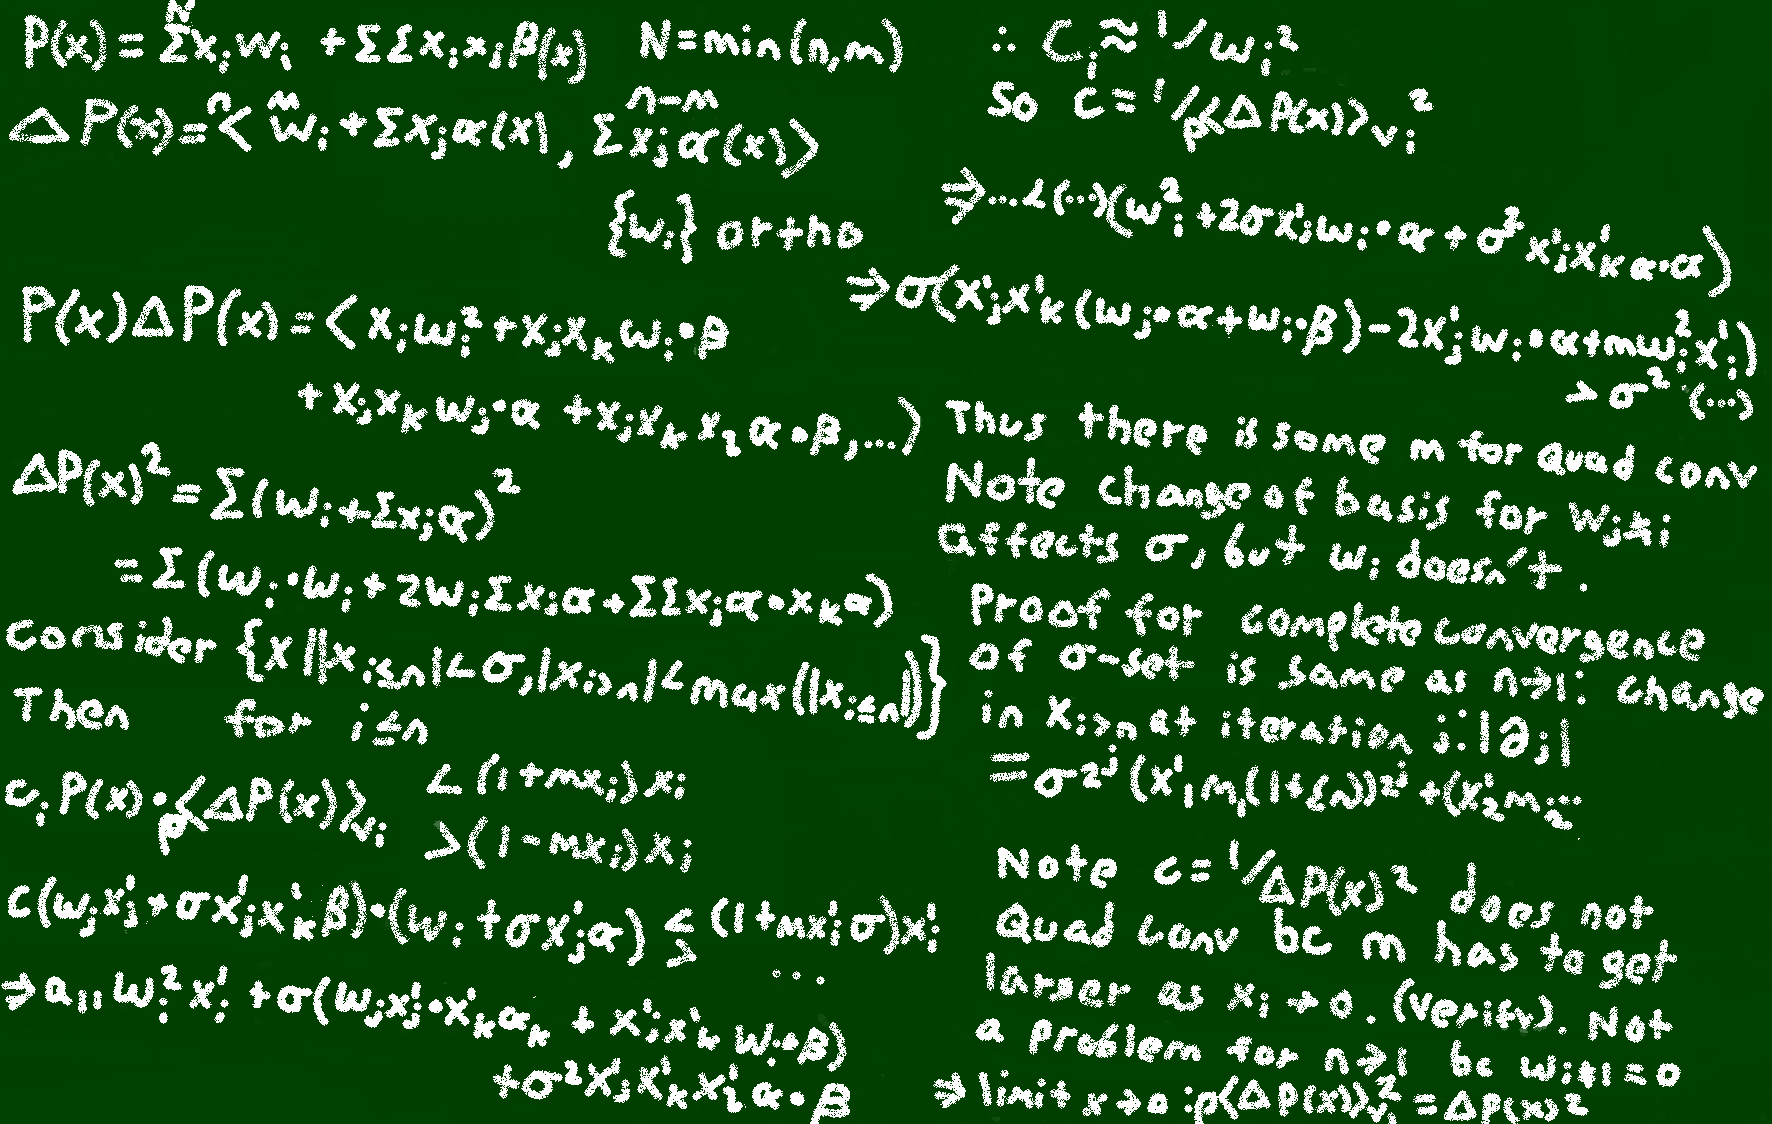 P(x) = Σ^N x_i w_i + ΣΣ x_i x_j β(x)   N = min(n,m)
Δ P(x) = <^n w_i^m + Σ x_j α(x), Σ^{n-m} x_j α(x)>
{w_i} ortho
P(x) Δ P(x) = < x_i w_i^2 + x_j x_k w_i · β
+ x_j x_k w_j · α + x_j x_k x_l α · β, ... )
ΔP(x)^2 = Σ (w_i + Σ x_j α)^2
= Σ (w_i · w_i + 2 w_i Σ x_j α + ΣΣ x_j α · x_k α)
Consider {x || x_{i≤n}| < σ, |x_{i>n}| < max(|x_{i≤n}|)}
Then for i≤n
c_i P(x) · _p<ΔP(x)>_{v_i} < (1+mx_i) x_i
> (1-mx_i) x_i
c(w_j x'_j + σ x'_j x'_k β) · (w_i + σ x'_j α) ≶ (1+mx'_i σ) x'_i
...
⇒ a_{11} w_i^2 x'_i + σ(w_j x'_j · x'_k α_k + x'_j x'_k w_i · β)
+ σ^2 x'_j x'_k x'_l α · β
∴ C_i ≈ 1/w_i^2
So C = 1/_p<Δ P(x)>_{v_i}^2
⇒ ... < (...)(w_i^2 + 2σ x'_j w_i · α + σ^2 x'_j x'_k α · α)
⇒ σ(x'_j x'_k (w_j · α + w_i · β) - 2x'_j w_i · α + m w_i^2 x'_i)
> σ^2 (...)
Thus there is some m for quad conv
Note change of basis for w_{j≠i}
affects σ, but w_i doesn't.
Proof for complete convergence
of σ-set is same as n→1: change
in x_{i>n} at iteration j: |∂_j|
= σ^{2^j} (x'_1 m_1 (1+Σn))^{2^j} + (x'_2 m_2 ...
Note c = 1/ΔP(x)^2 does not
Quad conv bc m has to get
larger as x_i → 0. (verify). Not
a problem for n→1 bc w_{i≠1} = 0
⇒ limit x→0 : _p<ΔP(x)>_{v_i}^2 = ΔP(x)^2